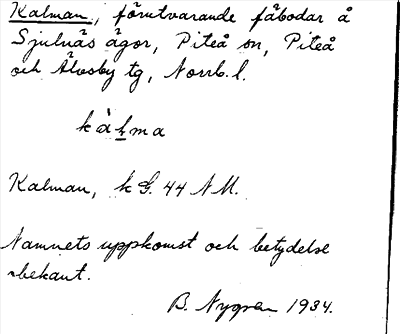 Kalman, förutvarande fäbodar å
Sjulnäs ägor, Piteå sn, Piteå
och Älvsby tg, Norrb. l.
kàlma
Kalman, k G. 44 NM.
Namnets uppkomst och betydelse
obekant.
B. Nygren 1934.